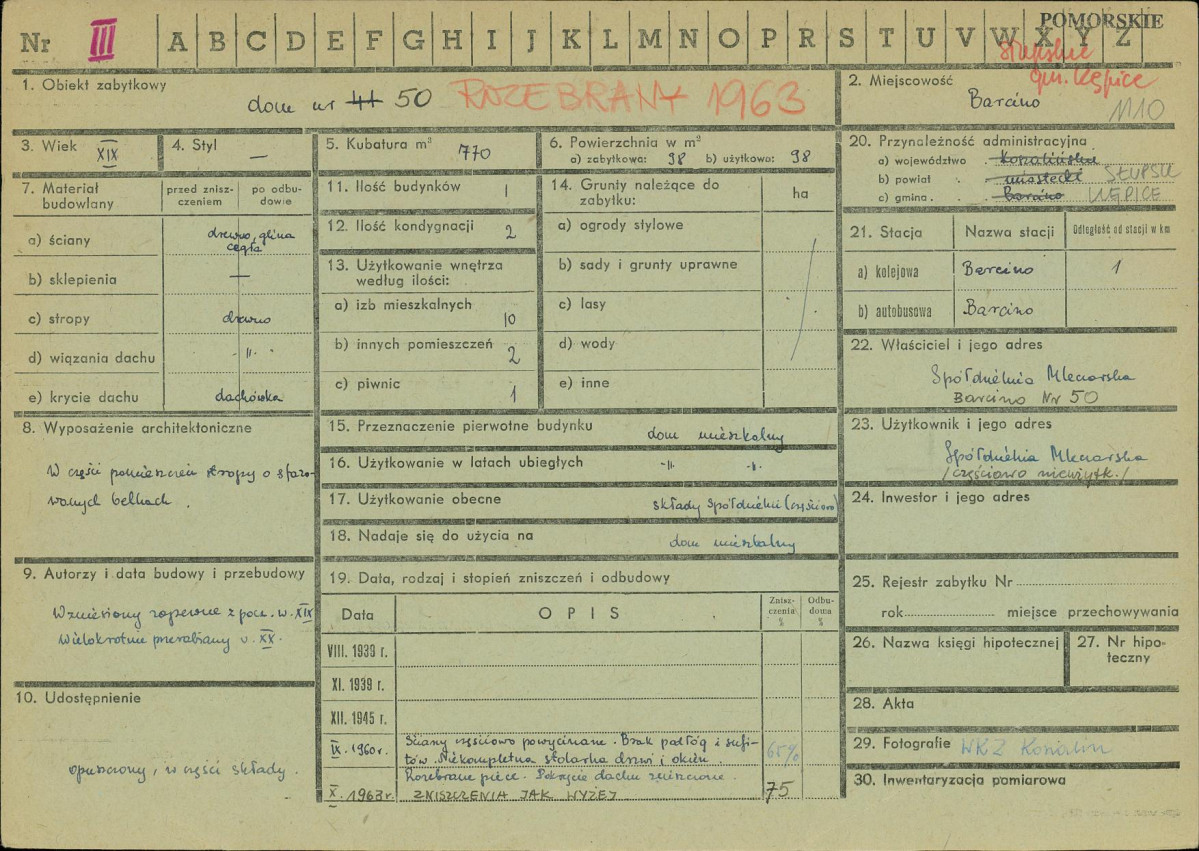 POMORSKIE
Nr III A B C D E F G H I J K L M N O P R S T U V W X Y Z
Słupskie
gm. Kępice
1. Obiekt zabytkowy
dom nr 41 50 ROZEBRANY 1963
2. Miejscowość
Barcino
1110
3. Wiek XIX
4. Styl —
5. Kubatura m³ 770
6. Powierzchnia w m²
a) zabytkowa: 98 b) użytkowa: 98
7. Materiał budowlany
przed znisz-
czeniem
po odbu-
dowie
a) ściany drewno, glina
cegła
b) sklepienia —
c) stropy drewno
d) wiązania dachu -"-
e) krycie dachu dachówka
8. Wyposażenie architektoniczne
W części pomieszczeń stropy o sfazo-
wanych belkach.
9. Autorzy i data budowy i przebudowy
Wzniesiony zapewne z pocz. w. XIX
Wielokrotnie przerabiany w. XX.
10. Udostępnienie
opuszczony, w części składy.
11. Ilość budynków 1
12. Ilość kondygnacji 2
13. Użytkowanie wnętrza
według ilości:
a) izb mieszkalnych 10
b) innych pomieszczeń 2
c) piwnic 1
14. Grunty należące do
zabytku:
ha
a) ogrody stylowe
b) sady i grunty uprawne
c) lasy
d) wody
e) inne
15. Przeznaczenie pierwotne budynku dom mieszkalny
16. Użytkowanie w latach ubiegłych -"- -"-
17. Użytkowanie obecne składy Spółdzielni (częściowo)
18. Nadaje się do użycia na dom mieszkalny
19. Data, rodzaj i stopień zniszczeń i odbudowy
Data OPIS
Znisz-
czenia
%
Odbu-
dowa
%
VIII. 1939 r.
XI. 1939 r.
XII. 1945 r.
IX. 1960 r. Ściany częściowo powycinane. Brak podłóg i sufi-
tów. Niekompletna stolarka drzwi i okien. 65%
Rozebrane piece. Pokrycie dachu zniszczone.
X. 1963 r. ZNISZCZENIA JAK WYŻEJ 75
20. Przynależność administracyjna
a) województwo koszalińskie
b) powiat miastecki SŁUPSK
c) gmina Barcino KĘPICE
21. Stacja Nazwa stacji Odległość od stacji w km
a) kolejowa Barcino 1
b) autobusowa Barcino
22. Właściciel i jego adres
Spółdzielnia Mleczarska
Barcino Nr 50
23. Użytkownik i jego adres
Spółdzielnia Mleczarska
/częściowo nieużytk./
24. Inwestor i jego adres
25. Rejestr zabytku Nr
rok miejsce przechowywania
26. Nazwa księgi hipotecznej
27. Nr hipo-
teczny
28. Akta
29. Fotografie WKZ Koszalin
30. Inwentaryzacja pomiarowa